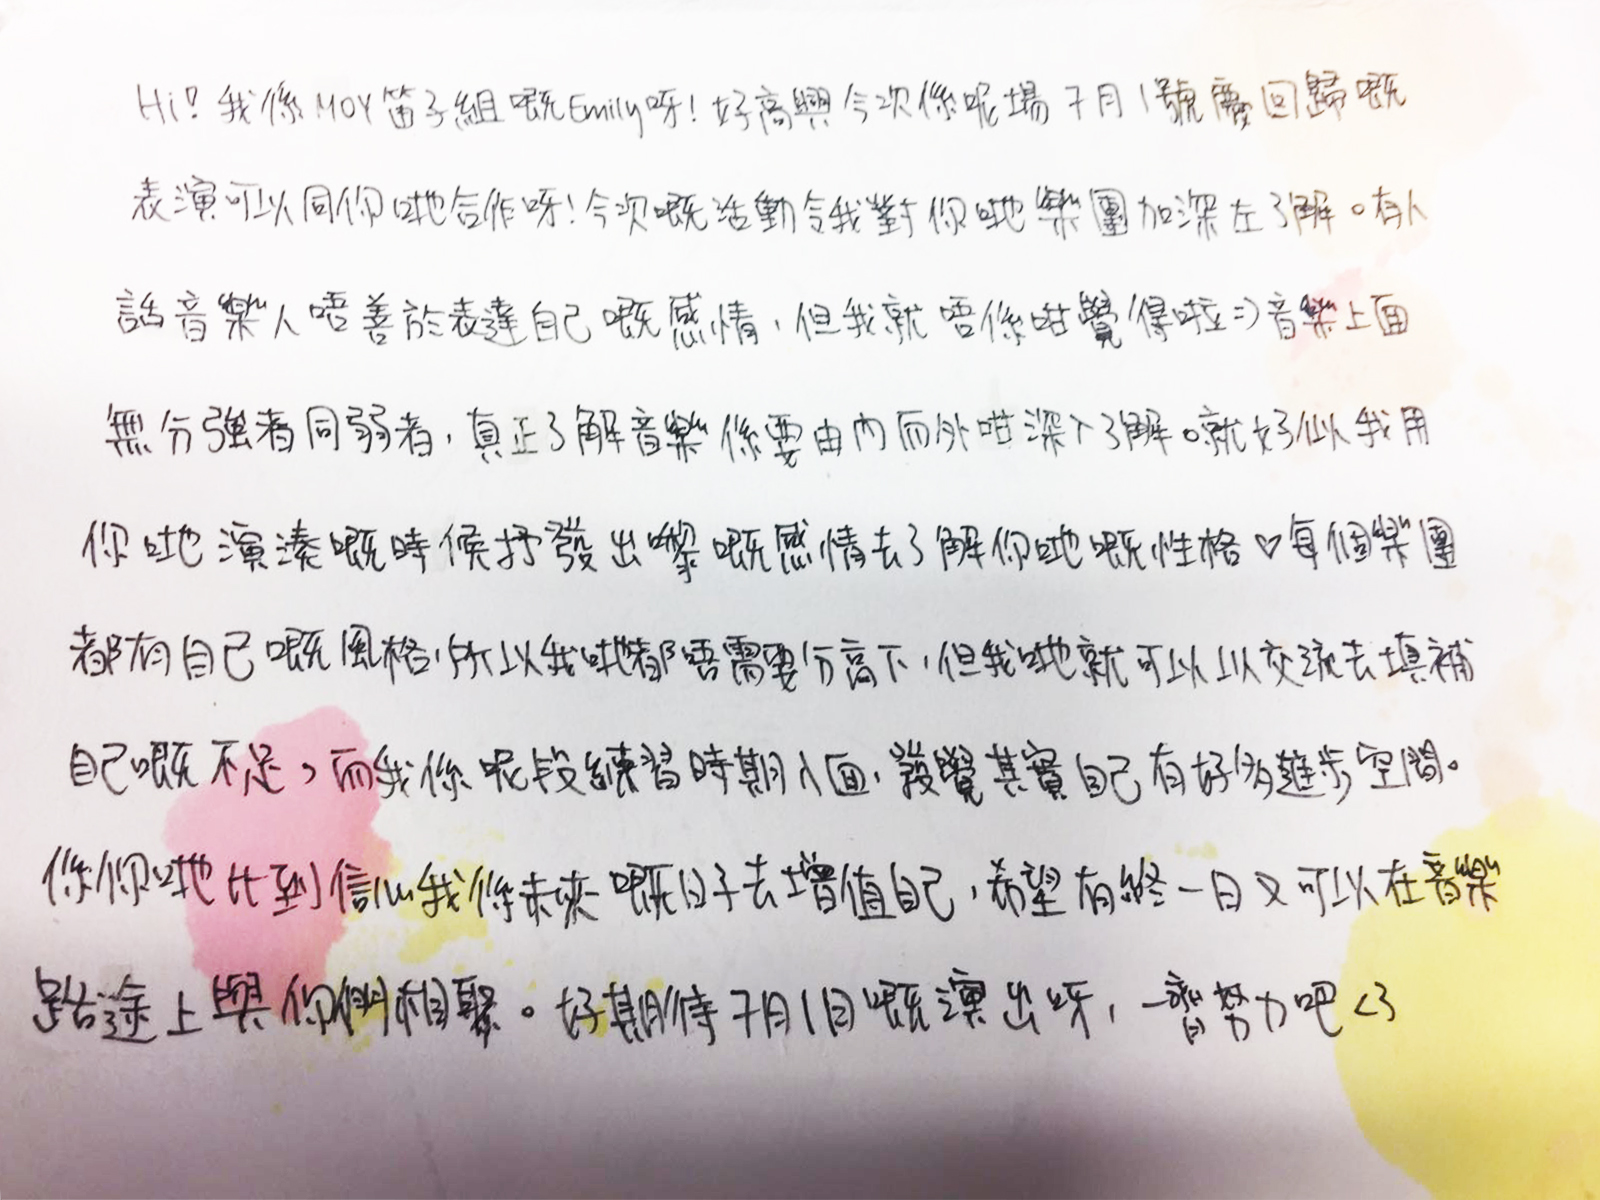 Hi! 我係MOY笛子組嘅Emily呀!好高興今次係呢場7月1號慶回歸嘅
表演可以同你哋合作呀!今次嘅活動令我對你哋樂團加深左了解。有人
話音樂人唔善於表達自己嘅感情,但我就唔係咁覺得啦=)音樂上面
無分強者同弱者,真正了解音樂係要由內而外咁深入了解。就好似我用
你哋演湊嘅時候抒發出嚟嘅感情去了解你哋嘅性格♡每個樂團
都有自己嘅風格,所以我哋都唔需要分高下,但我哋就可以以交流去填補
自己嘅不足,而我係呢段練習時期入面,發覺其實自己有好多進步空間。
係你哋比到信心我係未來嘅日子去增值自己,希望有終一日又可以在音樂
路途上與你們相聚。好期待7月1日嘅演出呀,一齊努力吧<3